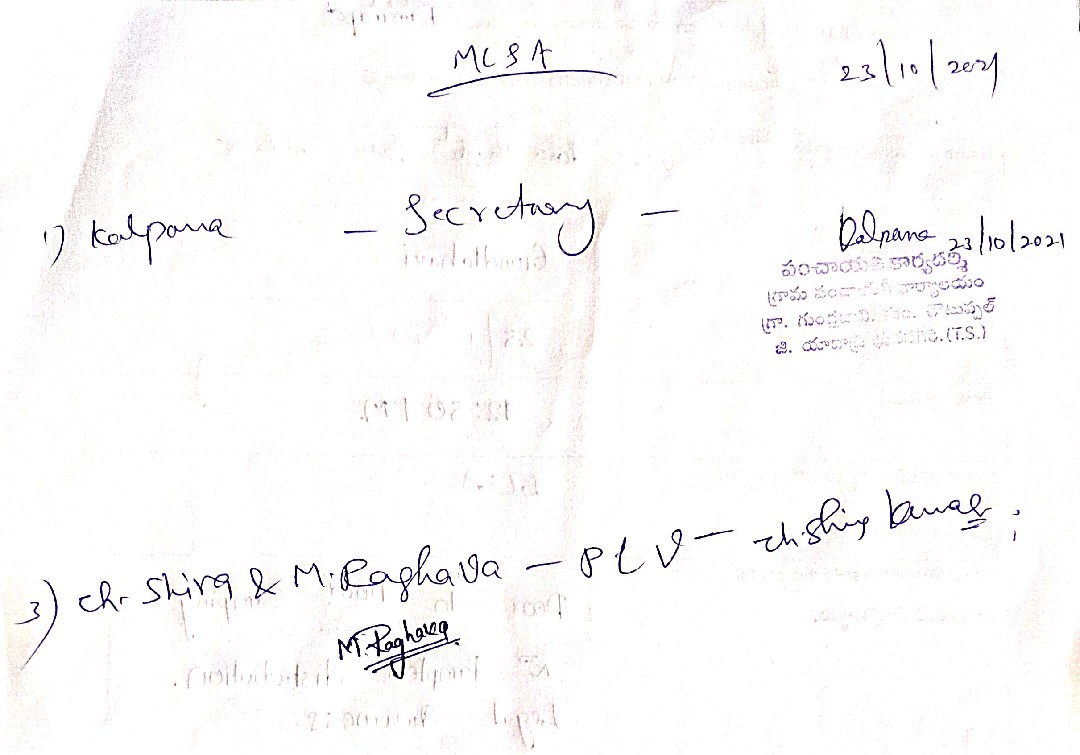 MLSA 23/10/2021
1) Kalpana — Secretary — Kalpana 23/10/2021
పంచాయతి కార్యదర్శి
గ్రామ పంచాయతీ కార్యాలయం
గ్రా. చౌటుప్పల్
జి. యాదాద్రి (T.S.)
3) ch. Shiva & M. Raghava — PLV — ch. Shiva kumar ;
M. Raghava